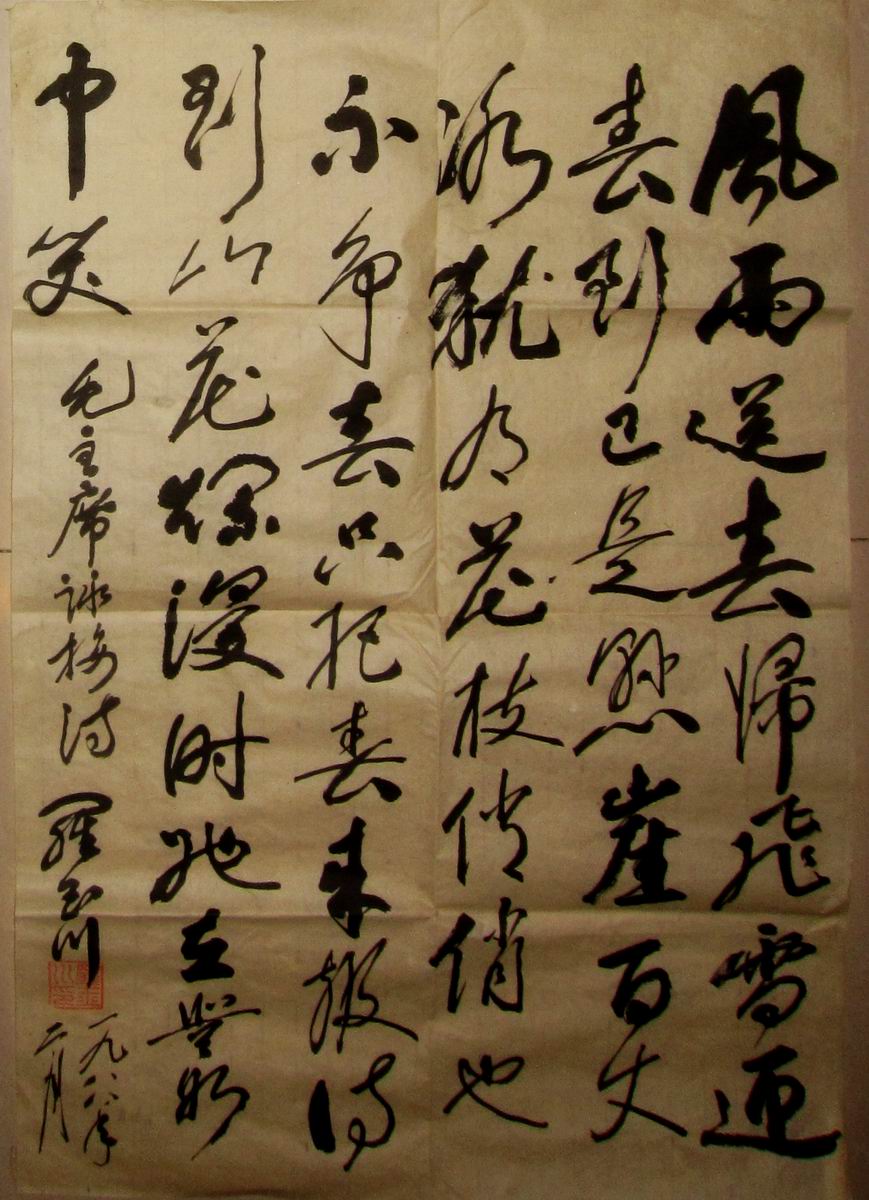 風雨送春歸飛雪迎
春到已是懸崖百丈
冰就有花枝俏俏也
不争春只把春来報待
到山花爛漫时她在叢
中笑 毛主席詠梅詩 羅玉川
一九八八年
二月